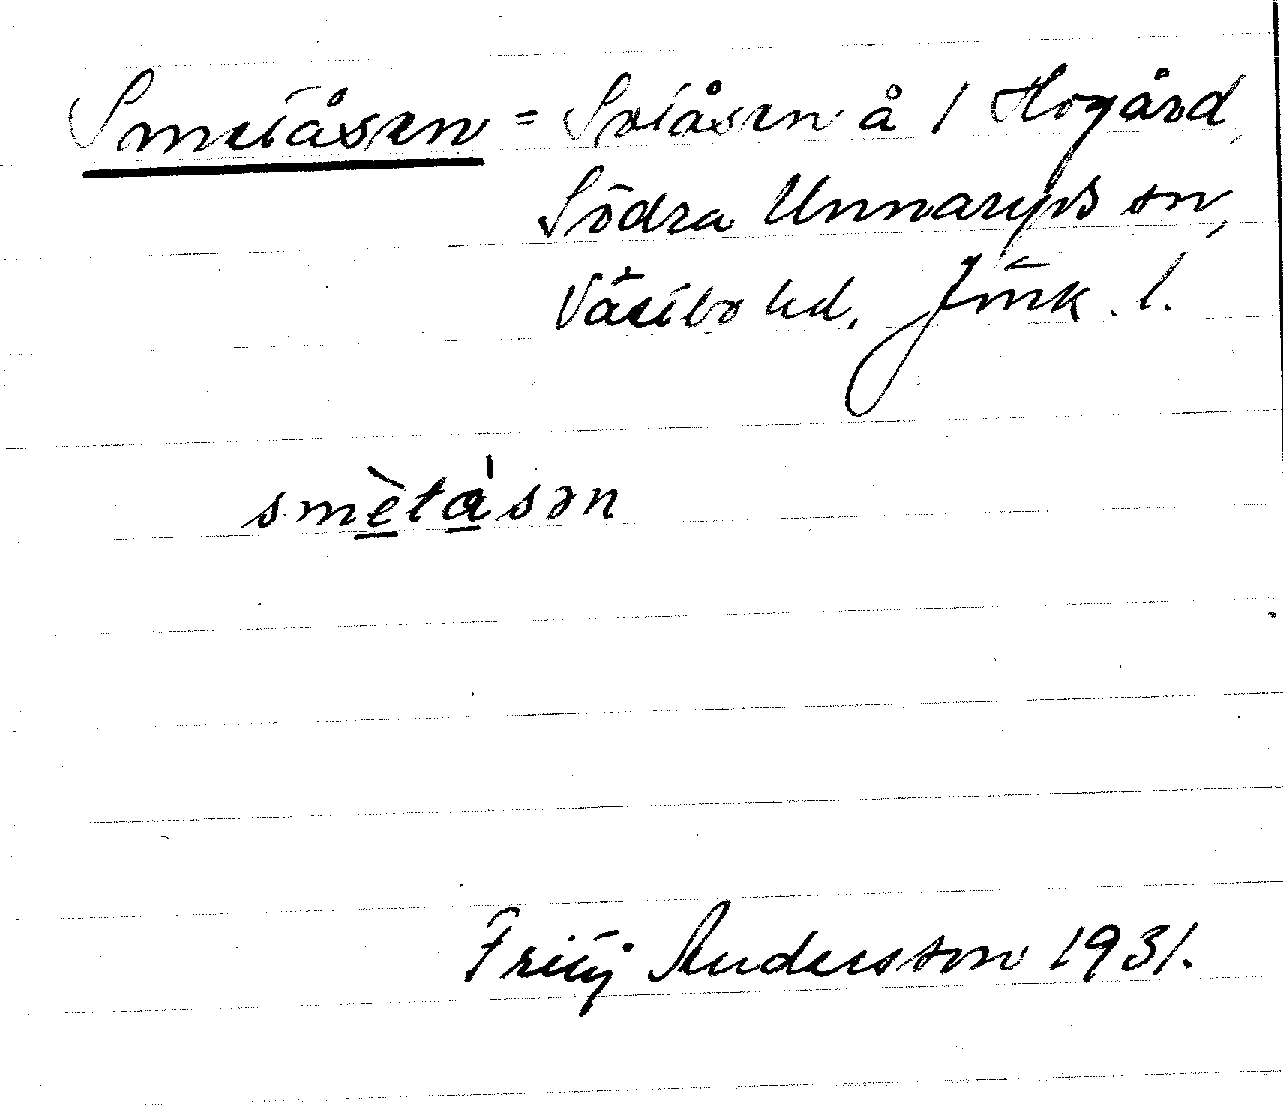 Smetåsen = Sotåsen å 1 Hogård,
Södra Unnaryds sn,
Västbo hd, Jönk. l.
smèta̍sən
Andersson 1931.